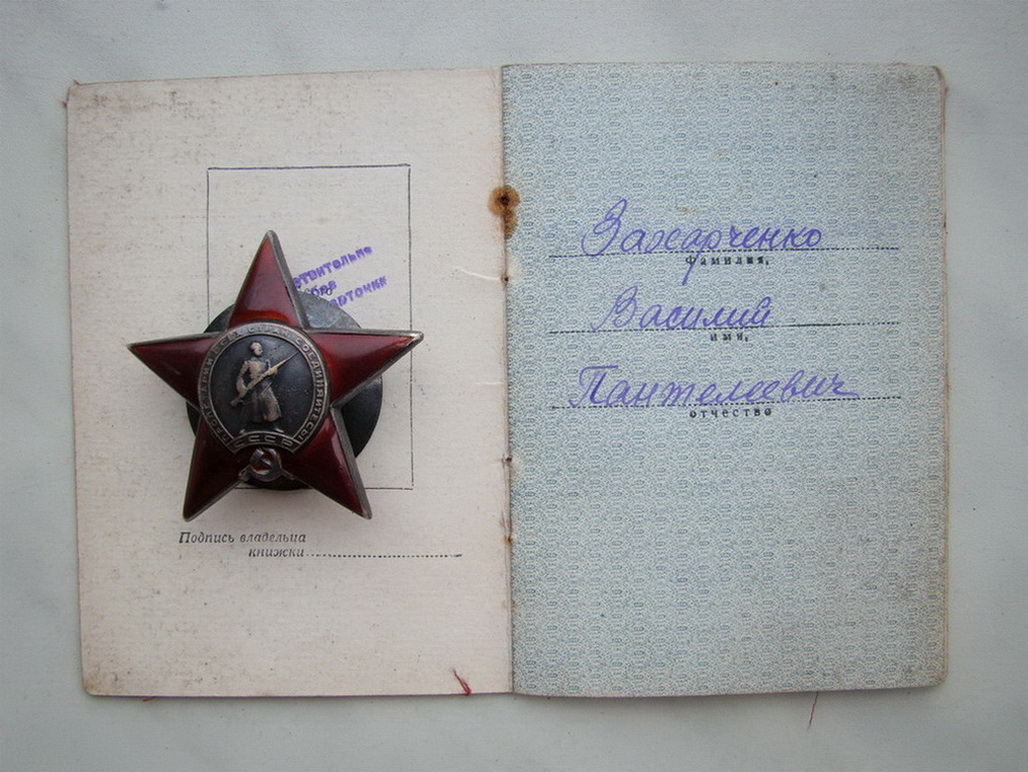 ПРОЛЕТАРИИ ВСЕХ СТРАН СОЕДИНЯЙТЕСЬ!
СССР
Подпись владельца
книжки
Захарченко
Фамилия,
Василий
имя,
Пантелеевич
отчество